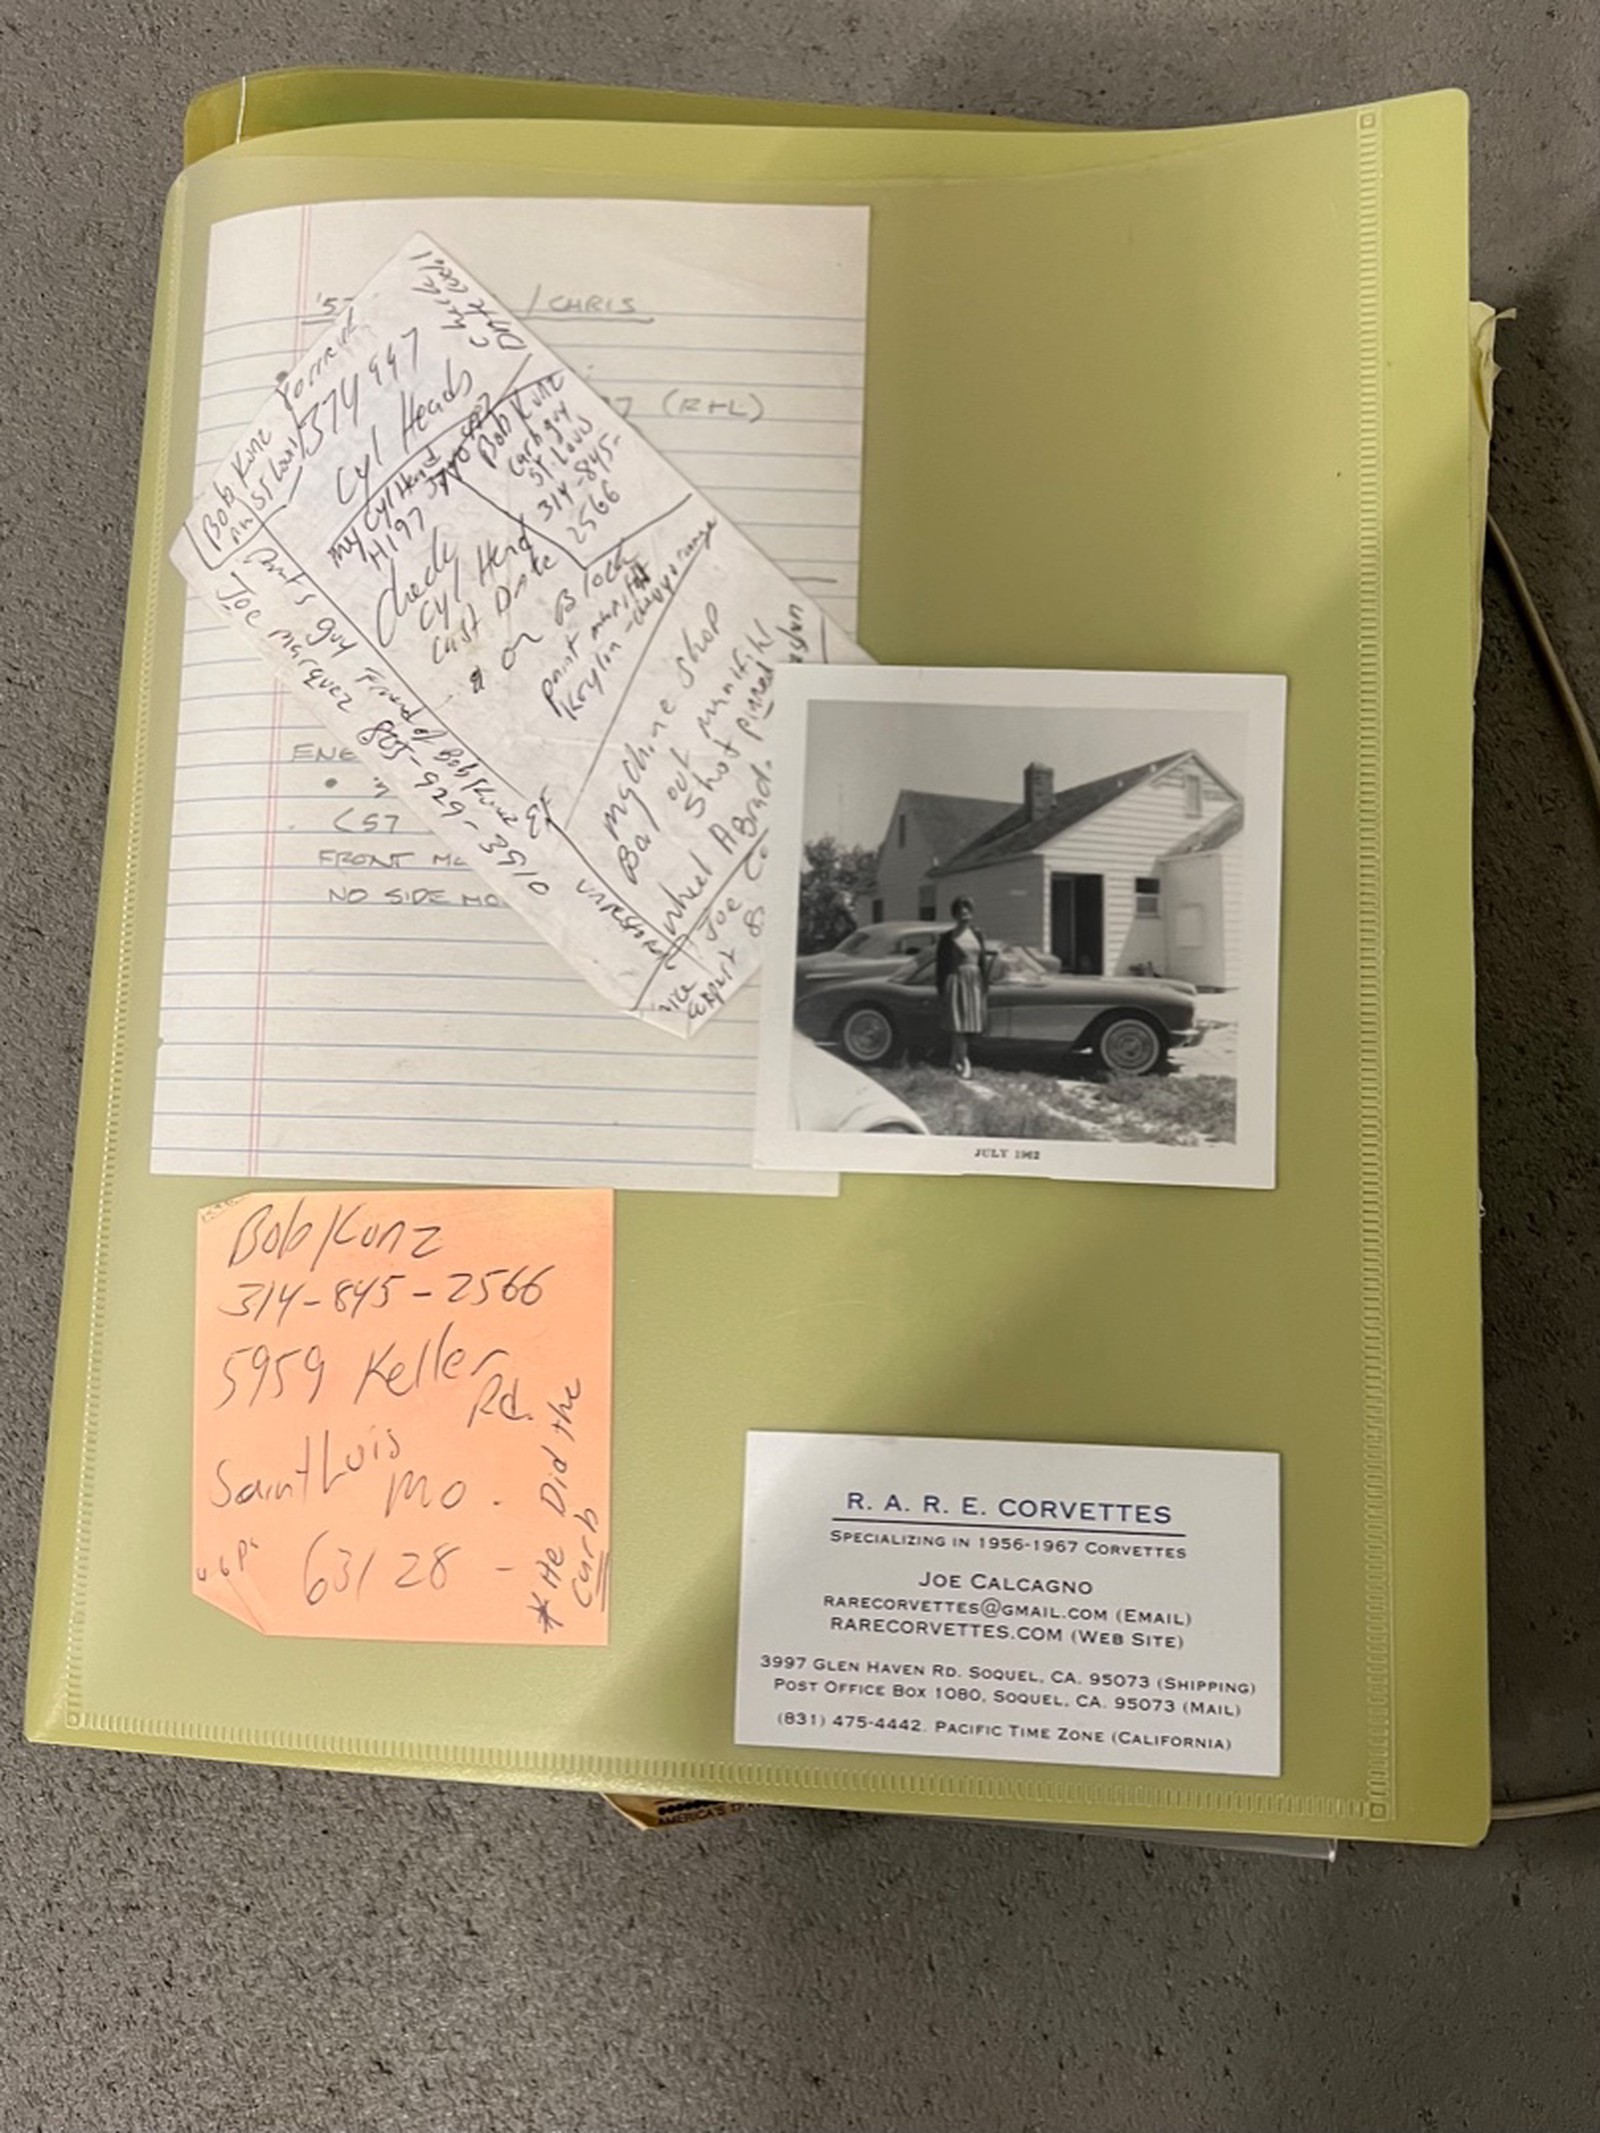 '5
/CHRIS
7 (R+L)
ENE
"
(57
FRONT
NO SIDE MO
Check
Correct
374997
Cyl Heads
my Cyl Head
H197
Check
Cyl Head
Cast Date
or Block
Bob Kunz
Carb guy
St. Louis
314-845-
2566
Bob Kunz
in St Louis
Parts guy Friend of Bob Kunz
Joe Marquez 805-929-3910
Paint
Krylon - chevy orange
machine shop
Bay out manifold
shot
wheel A Brad.
Joe Co
expert
JULY 1962
Bob Kunz
314-845-2566
5959 Keller
Rd.
Saint Luis
Mo.
63128 -
* He Did the
Carb
R. A. R. E. CORVETTES
SPECIALIZING IN 1956-1967 CORVETTES
JOE CALCAGNO
RARECORVETTES@GMAIL.COM (EMAIL)
RARECORVETTES.COM (WEB SITE)
3997 GLEN HAVEN RD. SOQUEL, CA. 95073 (SHIPPING)
POST OFFICE BOX 1080, SOQUEL, CA. 95073 (MAIL)
(831) 475-4442. PACIFIC TIME ZONE (CALIFORNIA)
AMERICA'S